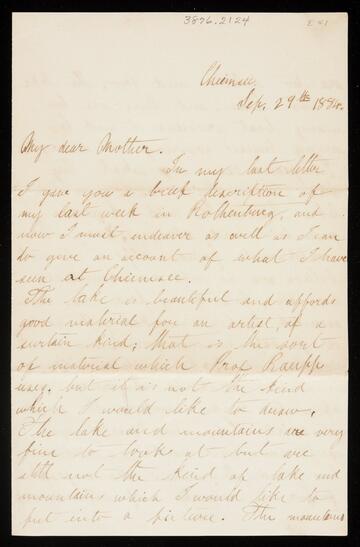 3876.2124
Chiemsee,
Sep, 29th 1894.
My dear Mother.
In my last letter
I gave you a brief description of
my last week in Rothenberg, and
now I must endeaver as well as I can
to give an account of what I have
seen at Chiemsee.
The lake is beautiful and affords
good material for an artist, of a
surtain kind; that is the sort
of material which Prof Raupp
uses, but it is not the kind
which I would like to draw.
The lake and mountains are very
fine to look at but are
still not the kind of lake and
mountains which I would like to
put into a picture. The mountains